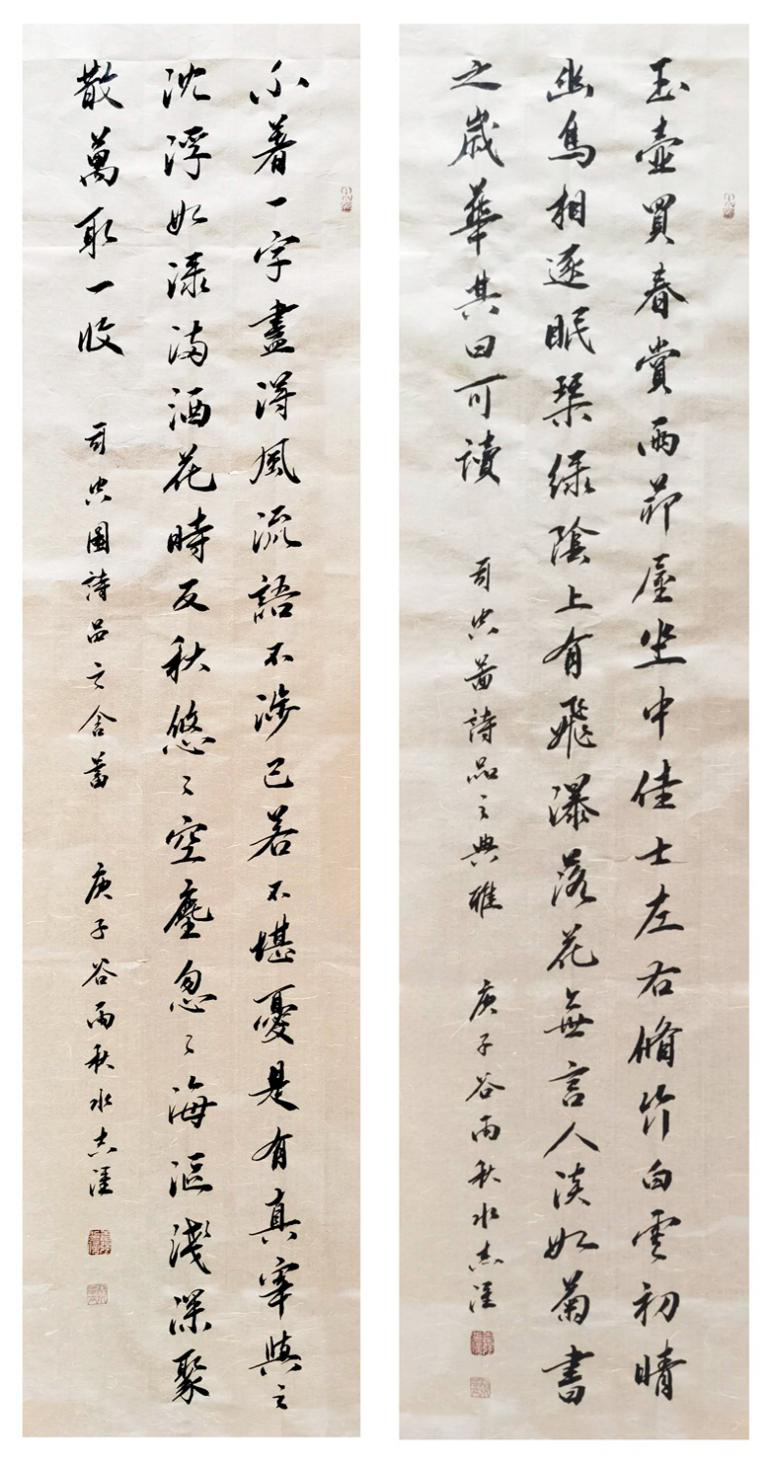 玉壺買春賞雨茆屋坐中佳士左右脩竹白雲初晴
幽鳥相逐眠琴綠陰上有飛瀑落花無言人淡如菊書
之歲華其曰可讀
司空啚詩品之典雅
庚子谷雨秋水志潼
不著一字盡得風流語不涉己若不堪憂是有真宰與之
沈浮如渌满酒花時反秋悠〻空塵忽〻海漚淺深聚
散萬取一收
司空圖詩品之含蓄
庚子谷雨秋水志潼